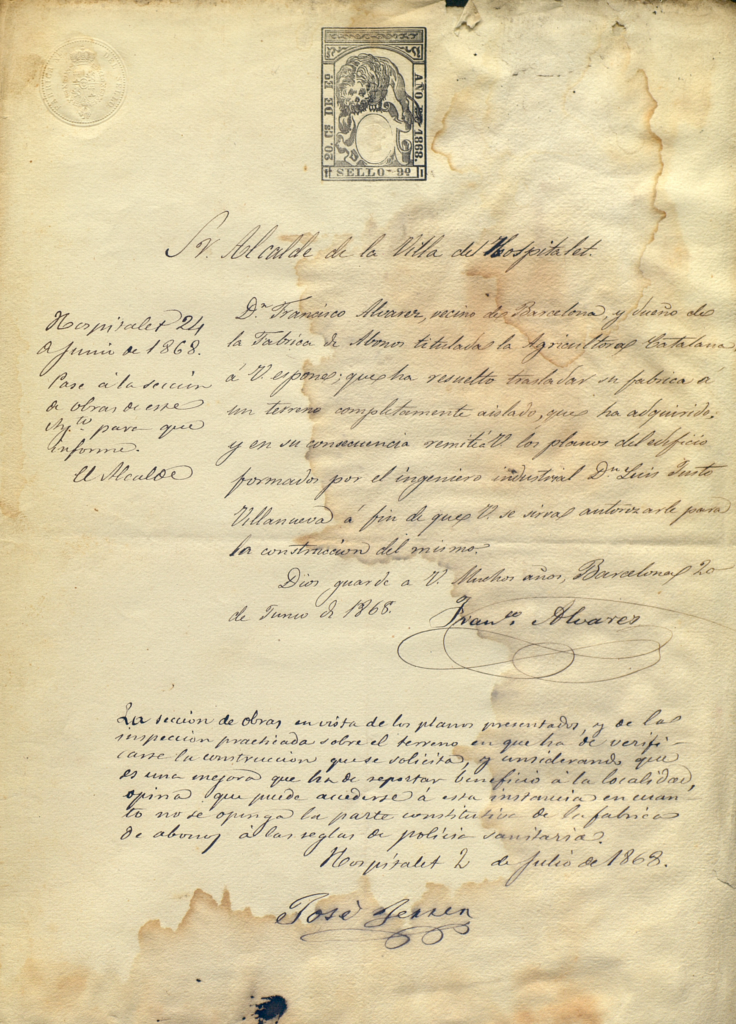 20. Cs. DE Eo.
AÑO DE 1868.
SELLO 9º
Sr. Alcalde de la Villa de Hospitalet.
Dn. Francisco Alvarez, vecino de Barcelona, y dueño de
la Fabrica de Abonos titulada la Agricultora Catalana,
á V. espone; que ha resuelto trasladar su fabrica á
un terreno completamente aislado, que ha adquirido;
y en su consecuencia remite á V. los planos del edificio
formados por el ingeniero industrial Dn. Luis Justo
Villanueva á fin de que V. se sirva autorizarle para
la construccion del mismo.
Dios guarde a V. Muchos años, Barcelona 20
de Junio de 1868.
Franco. Alvarez
Hospitalet 24
de Juni de 1868.
Pase á la sección
de obras de este
Aytº para que
informe.
El Alcalde
La sección de obras en vista de los planos presentados, y de la
inspeccion practicada sobre el terreno en que ha de verifi-
carse la construccion que se solicita, y considerando que
es una mejora que ha de reportar beneficio á la localidad,
opina que puede accederse á esta instancia en cuan-
to no se oponga la parte constitutiva de la fabrica
de abonos á las reglas de policia sanitaria.
Hospitalet 2 de Julio de 1868.
José